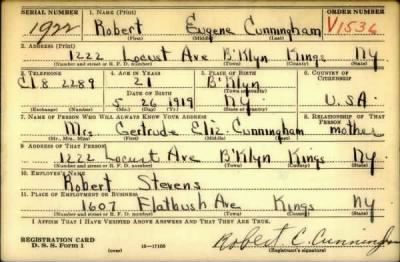 SERIAL NUMBER 1. NAME (Print) ORDER NUMBER
1922 Robert Eugene Cunningham V1536
(First) (Middle) (Last)
2. ADDRESS (Print)
1222 Locust Ave B'Klyn Kings NY
(Number and street or R. F. D. number) (Town) (County) (State)
3. TELEPHONE 4. AGE IN YEARS 5. PLACE OF BIRTH 6. COUNTRY OF CITIZENSHIP
CL8 2289 21 B'Klyn
DATE OF BIRTH (Town or county)
5 26 1919 NY. U.S.A.
(Exchange) (Number) (Mo.) (Day) (Yr.) (State or country)
7. NAME OF PERSON WHO WILL ALWAYS KNOW YOUR ADDRESS 8. RELATIONSHIP OF THAT PERSON
Mrs. Gertrude Eliz. Cunningham mother
(Mr., Mrs., Miss) (First) (Middle) (Last)
9. ADDRESS OF THAT PERSON
1222 Locust Ave B'Klyn Kings NY
(Number and street or R. F. D. number) (Town) (County) (State)
10. EMPLOYER'S NAME
Robert Stevens
11. PLACE OF EMPLOYMENT OR BUSINESS
1607 Flatbush Ave Kings NY
(Number and street or R. F. D. number) (Town) (County) (State)
I AFFIRM THAT I HAVE VERIFIED ABOVE ANSWERS AND THAT THEY ARE TRUE.
REGISTRATION CARD
D. S. S. Form 1 (over) 16—17105 Robert C. Cunningham
(Registrant's signature)